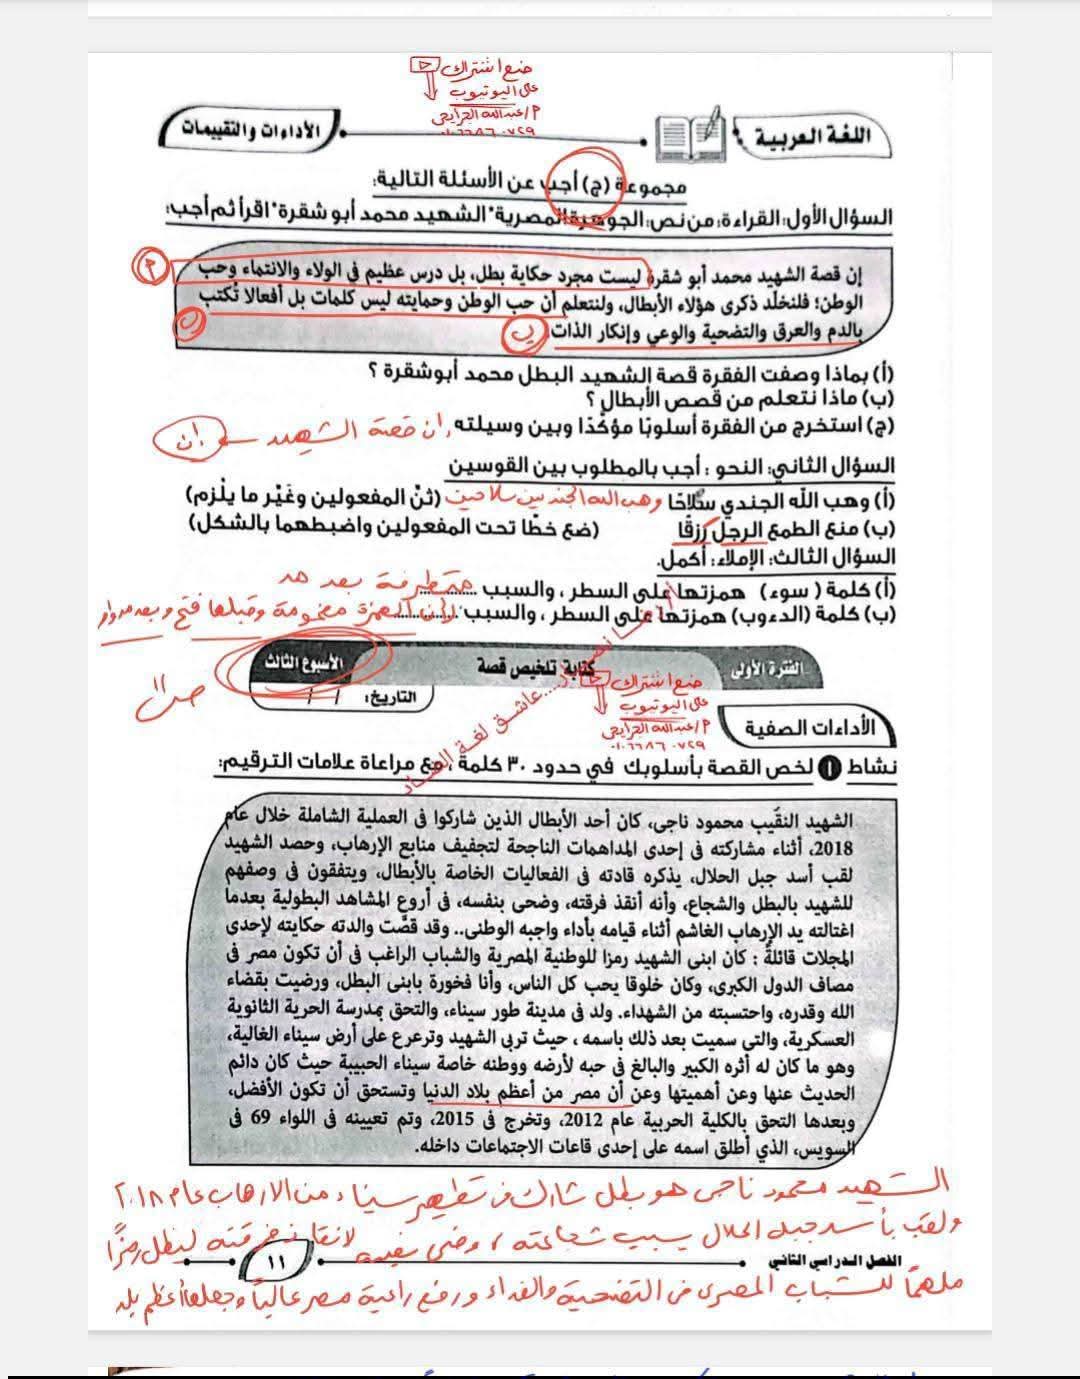 ضع اشتراك
على اليوتيوب
م/عبدالله الجرايحى
٠١٠٦٦٨٦٠٧٢٩
اللغة العربية
الأداءات والتقييمات
مجموعة (ج) أجب عن الأسئلة التالية:
السؤال الأول: القراءة: من نص: الجوهرة المصرية "الشهيد محمد أبو شقرة" اقرأ ثم أجب:
إن قصة الشهيد محمد أبو شقرة ليست مجرد حكاية بطل، بل درس عظيم في الولاء والانتماء وحب
الوطن؛ فلنخلّد ذكرى هؤلاء الأبطال، ولنتعلم أن حب الوطن وحمايته ليس كلمات بل أفعالا تُكتب
بالدم والعرق والتضحية والوعي وإنكار الذات
ب
(أ) بماذا وصفت الفقرة قصة الشهيد البطل محمد أبوشقرة ؟
(ب) ماذا نتعلم من قصص الأبطال ؟
(ج) استخرج من الفقرة أسلوبًا مؤكدًا وبين وسيلته. ان قصة الشهيد ← ان
السؤال الثاني: النحو : أجب بالمطلوب بين القوسين
(أ) وهب الله الجندي سلاحًا وهب الله الجنديين سلاحين (ثنّ المفعولين وغَيّر ما يلْزم)
(ب) منع الطمع الرجلَ رزقًا (ضع خطًّا تحت المفعولين واضبطهما بالشكل)
السؤال الثالث: الإملاء: أكمل.
(أ) كلمة ( سوء ) همزتها على السطر ، والسبب متطرفة بعد مد
(ب) كلمة (الدءوب) همزتها على السطر ، والسبب لأن الهمزة مضمومة وقبلها فتح وبعدها واو
الفترة الأولى
كتابة تلخيص قصة
الأسبوع الثالث
التاريخ: / /
ضع اشتراك
على اليوتيوب
م/عبدالله الجرايحى
٠١٠٦٦٨٦٠٧٢٩
عاشق لغة الضاد
الأداءات الصفية
نشاط ١ لخص القصة بأسلوبك في حدود ٣٠ كلمة ، مع مراعاة علامات الترقيم:
الشهيد النقَيب محمود ناجى، كان أحد الأبطال الذين شاركوا فى العملية الشاملة خلال عام
2018، أثناء مشاركته فى إحدى المداهمات الناجحة لتجفيف منابع الإرهاب، وحصد الشهيد
لقب أسد جبل الحلال، يذكره قادته فى الفعاليات الخاصة بالأبطال، ويتفقون فى وصفهم
للشهيد بالبطل والشجاع، وأنه أنقذ فرقته، وضحى بنفسه، فى أروع المشاهد البطولية بعدما
اغتالته يد الإرهاب الغاشم أثناء قيامه بأداء واجبه الوطنى.. وقد قصَّت والدته حكايته لإحدى
المجلات قائلةً : كان ابنى الشهيد رمزا للوطنية المصرية والشباب الراغب فى أن تكون مصر فى
مصاف الدول الكبرى، وكان خلوقا يحب كل الناس، وأنا فخورة بابنى البطل، ورضيت بقضاء
الله وقدره، واحتسبته من الشهداء. ولد فى مدينة طور سيناء، والتحق بمدرسة الحرية الثانوية
العسكرية، والتى سميت بعد ذلك باسمه ، حيث تربى الشهيد وترعرع على أرض سيناء الغالية،
وهو ما كان له أثره الكبير والبالغ فى حبه لأرضه ووطنه خاصة سيناء الحبيبة حيث كان دائم
الحديث عنها وعن أهميتها وعن أن مصر من أعظم بلاد الدنيا وتستحق أن تكون الأفضل،
وبعدها التحق بالكلية الحربية عام 2012، وتخرج فى 2015، وتم تعيينه فى اللواء 69 فى
السويس، الذي أطلق اسمه على إحدى قاعات الاجتماعات داخله.
الشهيد محمود ناجى هو بطل شارك فى تطهير سيناء من الارهاب عام ٢٠١٨
ولقب بأسد جبل الحلال بسبب شجاعته ، وضحى بنفسه لانقاذ فرقته ليظل رمزًا
الفصل الدراسي الثاني
١١
ملهمًا للشباب المصرى فى التضحية والفداء ورفع راية مصر عالياً وجعلها أعظم بلد